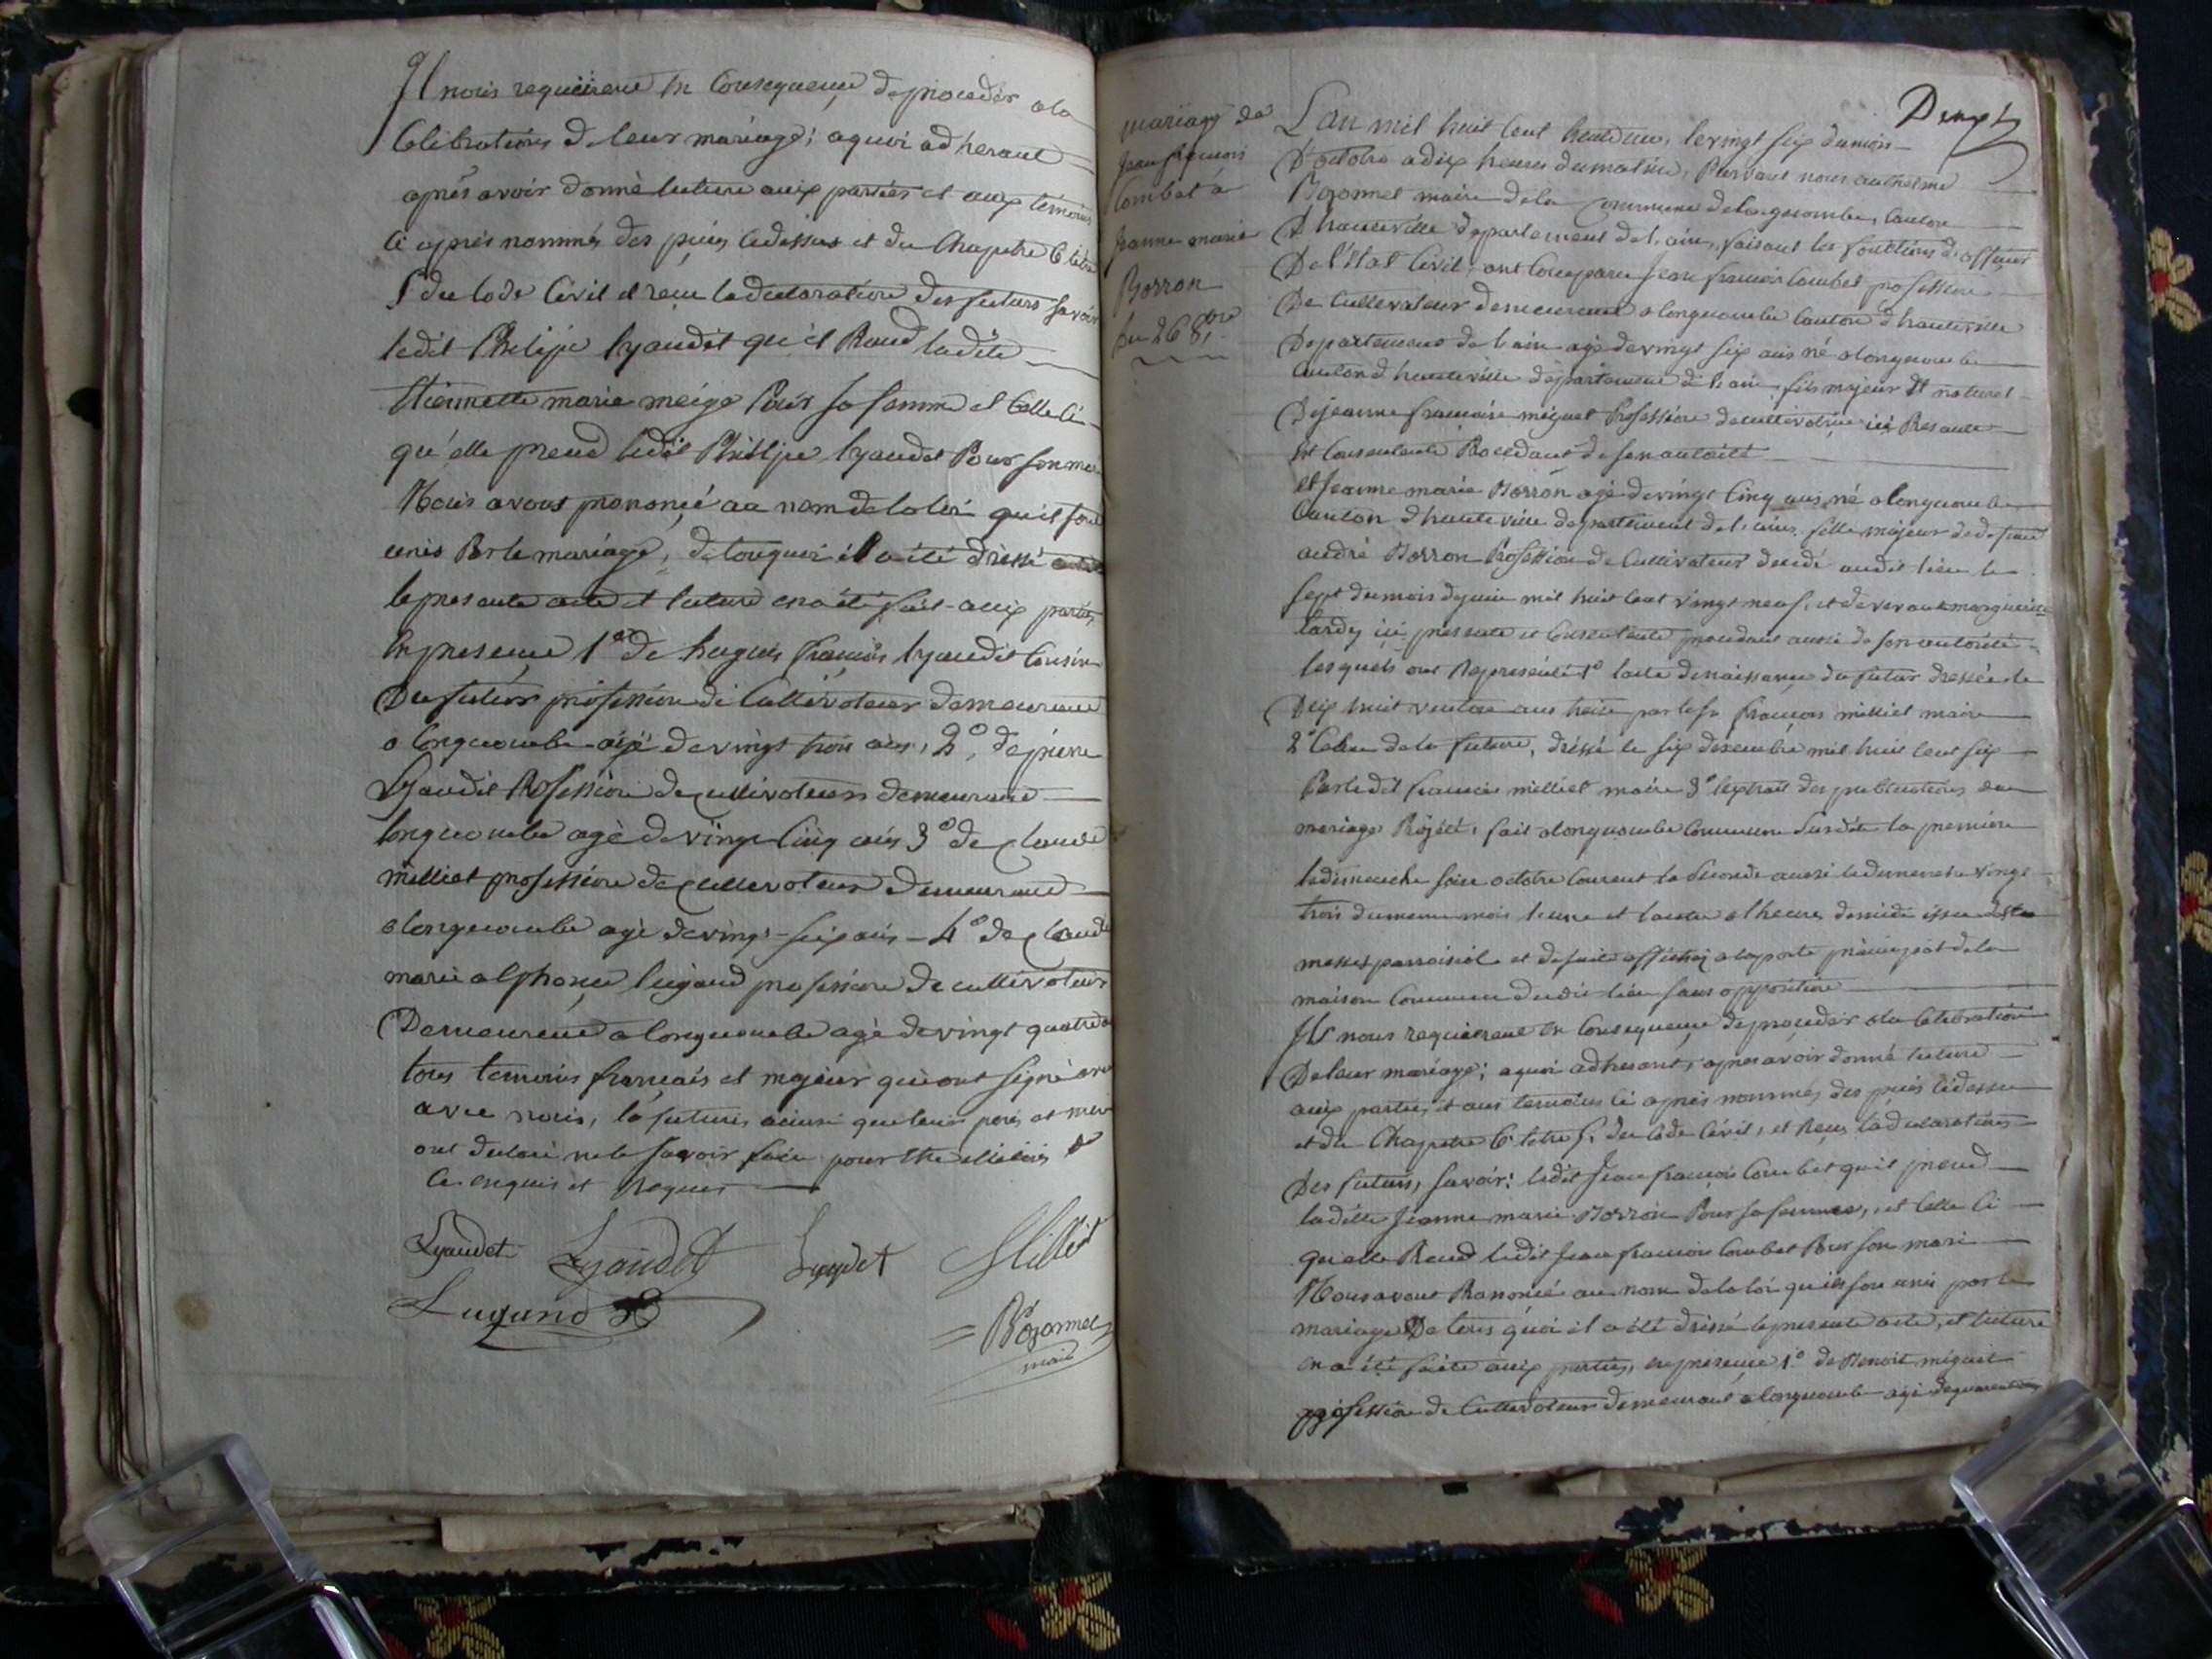 Il nous requièrent en Consequence de proceder a la
Célébrations de leur mariage; aquoi adherant
aprés avoir donné lecture aux parties et aux témoins
ci aprés nommés des piéces cidessus et du Chapitre 6 titre
5 du Code Civil et reçu la declaration des futurs savoir
ledit Philipe lyaudet qu'il Prend ladite
Etiennette marie meige Pour sa femme et Celle ci
qu'elle prend ledit Philipe lyaudet Pour son mari
Nous avons prononcé au nom de la loi qu'il sont
unis Par le mariage, de touquoi il a été dressé
le presente acte et lecture en a été fait aux parties
En presence 1º de hugues françois lyaudet Cousin
Du futur profession de Cultivateur demeurant
a longecombe agé de vingt trois ans, 2º, de pierre
Lyaudet Profession de cultivateur demeurant
longecombe agé de vingt Cinq ans 3º de Claude
milliet profession de cultivateur demeurant
a longecombe agé de vingt-six ans - 4º de Claude
marie alphonse lugand profession de cultivateur
Demeurant a longecombe agé de vingt quatre
tous temoins français et majeur qui ont signé
avec nous, le futurs ainsi que leurs peres et mere
ont declaré ne le savoir faire pour
Ce enquis et Requis
Lyaudet Lyaudet Lyaudet Milliet
Lugand
Bozonnet
maire
mariage de
Jean françois
Combet à
Jeanne marie
Borron
du 26 8bre
L'an mil huit Cent trente deux, le vingt six du mois
D'octobre a dix heures du matin, Pardevant nous anthelme
Bozonnet maire de la Commune de longecombe, Canton
D'hauteville departement de l'ain, faisant les fonctions d'officier
De l'état Civil, ont Comparu Jean françois Combet profession
De Cultivateur demeurant a longecombe Canton d'hauteville
Departement de l'ain agé de vingt six ans né a longecombe
Canton d'hauteville departement de l'ain, fils majeur et naturel
De jeanne françoise miguet Profession de cultivatrice ici Presente
et Consentente Procedant de son autorité
et Jeanne marie Borron agé de vingt Cinq ans, né a longecombe
Canton d'hauteville departement de l'ain, fille majeur de defunt
andré Borron Profession de Cultivateur decedé audit lieu le
sept du mois de juin mil huit Cent vingt neuf, et de vivante marguerite
lardy ici presente et Consentente procedant aussi de son autorité
lesquels ont Representé 1º l'acte de naissance du futur dressé le
Dix huit ventose ans treize par le sr françois milliet maire
2º Celui de la future, dréssé le six décembre mil huit Cent six
Par le dit françois milliet maire 3º l'extrait des publications de
mariage Projété, fait a longecombe Commune Susdite la premiere
le dimanche seize octobre Courent la seconde aussi le dimanche vingt
trois du meme mois l'une et l'autre a l'heure de midi issue de la
messe parroissiale et de suite affichez a la porte principal de la
maison Commune dudit lieu sans opposition
Ils nous requierent en Consequence de proceder a la Celebration
De leur mariage; aquoi adherant, apres avoir donné lecture
aux parties, et aux temoins ci aprés nommés, des piéces cidessus
et du Chapitre 6 titre 5 du Code Civil, et Reçu la declarations
Des futurs, savoir; ledit Jean françois Combet qu'il prend
ladite Jeanne marie Borron Pour sa femme, et Celle Ci
qu'elle Prend ledit Jean francois Combet Pour son mari
Nous avons Prononcé au nom de la loi qu'ils son unis par le
mariage De touts quoi il a été dréssé le presente acte, et lecture
en a été faite aux parties, en presence 1.º de Benoit miguet
profession de Cultivateur demeurant a longecombe agé de quarante